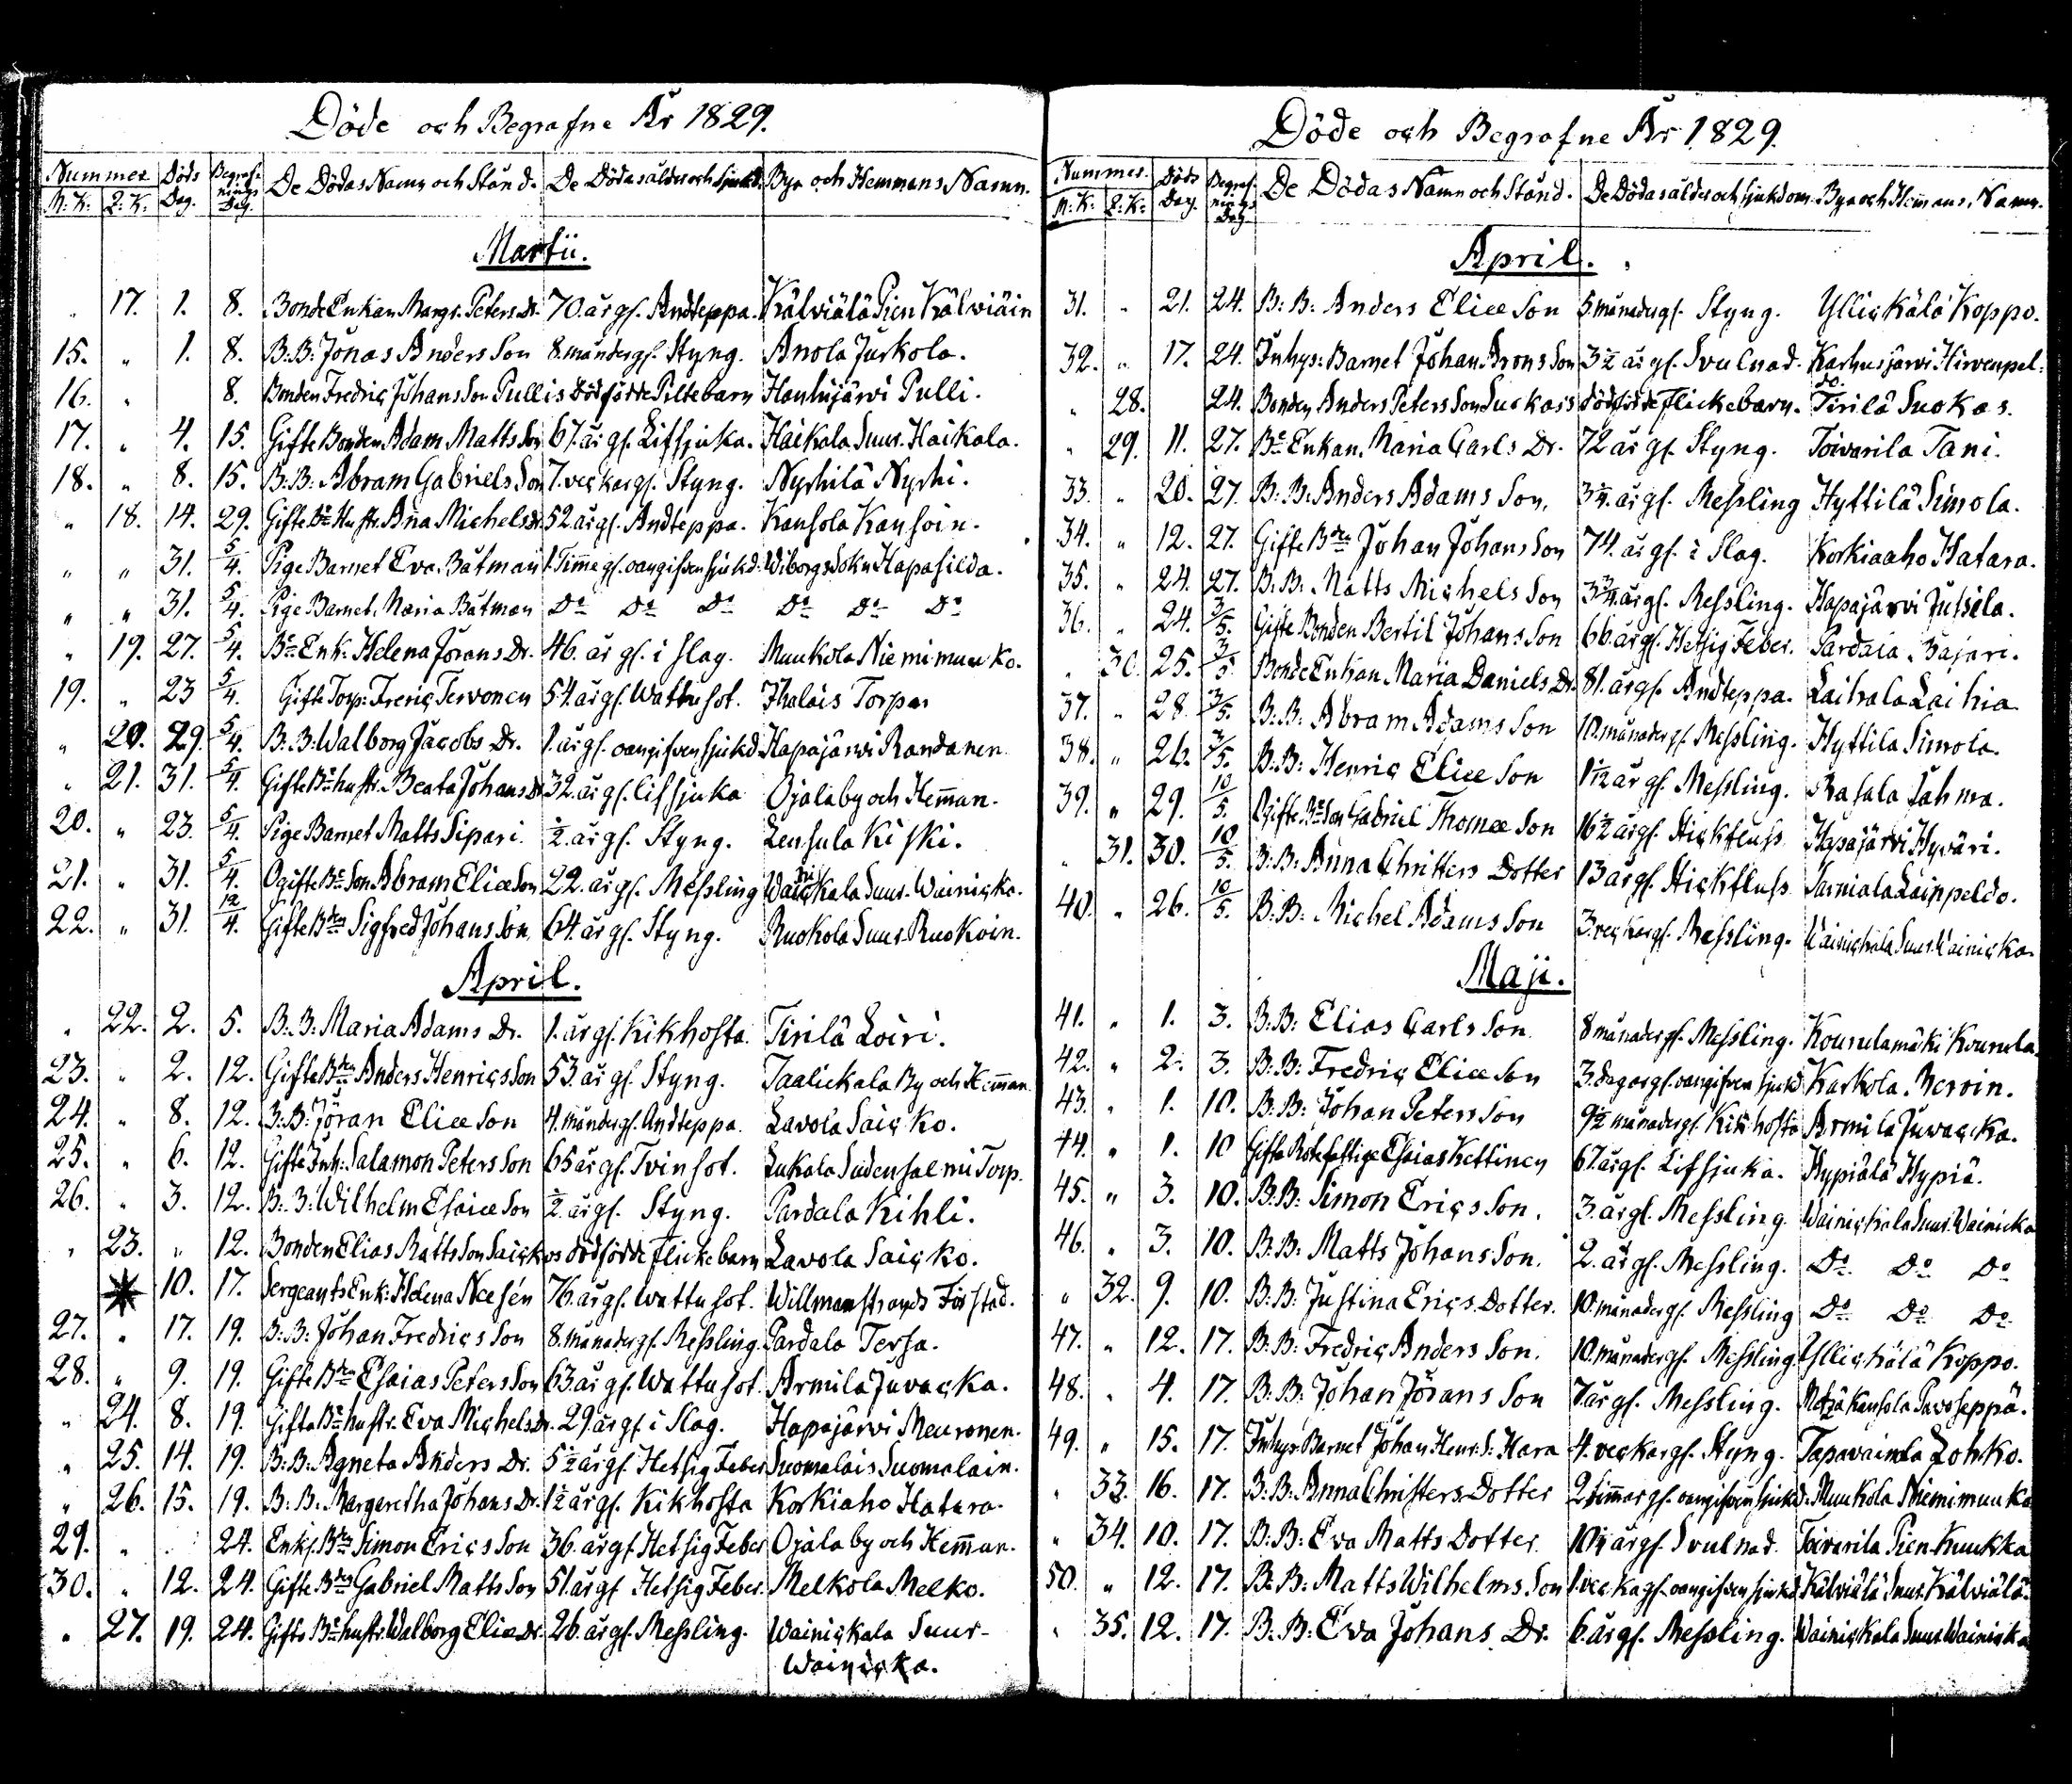 Döde och Begrafne År 1829.
Nummer Döds Begraf- De Dödas Namn och Stånd. De Dödas ålder och Sjukd. Byn och Hemmans Namn.
M:K: Q:K: Dag. nings Dag.
Martii.
" 17. 1. 8. Bonde Enkan Margr. Peters Dr. 70. år gl. Andteppa. Kälviälä Pien Kälviäin
15. " 1. 8. B:B: Jonas Anders Son 8. månder gl. Styng. Anola Jurkola.
16. " 8. Bonden Fredric Johans Son Pullis dödfödde Piltebarn Hanhijärvi Pulli.
17. " 4. 15. Gifte Bonden Adam Matts Son 67. år gl. Lifsjuka. Haikala Suur-Haikala.
18. " 8. 15. B:B: Abram Gabriels Son 7. veckor gl. Styng. Nyrhilä Nyrhi.
" 18. 14. 29. Gifte Be Hustr. Aña Michels dr 52 år gl. Andteppa. Kansola Kansoin.
" " 31. 5/4. Pige Barnet Eva Båtman 1. Timme gl. oangifven sjukd: Wiborgs Sokn Hapasilda.
" " 31. 5/4. Pige Barnet Maria Båtman Do Do Do Do Do Do
" 19. 27. 5/4. Be Enk: Helena Jörans Dr. 46. år gl. i slag. Muukola Niemimuuko.
19. " 23 5/4. Gifte Torp: Freric Tervonen 54. år gl. Wattusot. Ihalais Torpar
" 20. 29. 5/4. B:B: Walborg Jacobs Dr. 1. år gl. oangifven sjukd. Hapajärvi Randanen
" 21. 31. 5/4. Gifte Be hustr. Beata Johans Dr 32. år gl. Lifsjuka Ojala by och Hemman.
20. " 23. 5/4. Pige Barnet Matts Sipari. 1/2. år gl. Styng. Lensula Kiski.
21. " 31. 5/4. Ogifte Be Son Abram Eliæ Son 22. år gl. Messling Wainikkala Suur-Wainicka.
22. " 31. 12/4. Gifte Bden Sigfred Johans Son 64. år gl. Styng. Ruokola Suur-Ruokoin.
April.
" 22. 2. 5. B:B: Maria Adams Dr. 1. år gl. Kikhosta. Tirilä Loiri.
23. " 2. 12. Gifte Bden Anders Henrics Son 53. år gl. Styng. Taalickala By och Hemman.
24. " 8. 12. B:B: Jöran Eliæ Son 4. månder gl. Andteppa. Lavola Saicko.
25. " 6. 12. Gifte Inh: Salamon Peters Son 65 år gl. Tvinsot. Lukala Sudensalmi Torp.
26. " 3. 12. B:B: Wilhelm Esaiæ Son 1/2. år gl. Styng. Pardala Kihli.
" 23. " 12. Bonden Elias Matts Son Saickos dödfödde flickebarn Lavola Saicko.
10. 17. Sergeants Enk: Helena Neesén 76. år gl. Wattusot. Willmanstrands Fästad.
27. " 17. 19. B:B: Johan Fredrics Son 8. månader gl. Messling. Pardala Tersa.
28. " 9. 19. Gifte Bden Esaias Peters Son 63. år gl. Wattusot. Armila Juvacka.
" 24. 8. 19. Gifte Be hustr. Eva Michels Dr. 29. år gl. i Slag. Hapajärvi Meuronen.
" 25. 14. 19. B:B: Agneta Anders Dr. 5 1/2 år gl. Hetsig Feber Suomalais Suomalain.
" 26. 15. 19. B:B: Margaretha Johans Dr. 1 1/2 år gl. Kikhosta Korkiaho Hatara.
29. " 24. Enkj. Bden Simon Erics Son 36. år gl. Hetsig Feber Ojala by och Hemman.
30. " 12. 24. Gifte Bden Gabriel Matts Son 51. år gl. Hetsig Feber. Melkola Melko.
" 27. 19. 24. Gifte Be hustr. Walborg Eliæ Dr. 26. år gl. Messling. Wainickala Suur-
Wainicka.
Döde och Begrafne År 1829.
Nummer. Döds Begraf- De Dödas Namn och Stånd. De Dödas ålder och sjukdom. Byn och Hemmans Namn.
M:K: Q:K: Dag. nings Dag.
April.
31. " 21. 24. B:B: Anders Eliæ Son 5. månader gl. Styng. Yllickälä Koppo.
32. " 17. 24. Inhys: Barnet Johan Arons Son 3 1/2 år gl. Svulnad. Karhusjärvi Hirvenpel-
do.
" 28. 24. Bonden Anders Peters Son Suckass dödfödde flickebarn. Tirilä Suokas.
" 29. 11. 27. Be Enkan Maria Carls Dr. 72 år gl. Styng. Toivarila Tani.
33. " 20. 27. B:B: Anders Adams Son. 3 1/4. år gl. Messling Hyttilä Simola.
34. " 12. 27. Gifte Bden Johan Johans Son 74. år gl. i Slag. Korkiaaho Hatara.
35. " 24. 27. B:B: Matts Michels Son 3 3/4. år gl. Messling. Hapajärvi Jussila.
36. " 24. 3/5. Gifte Bonden Bertil Johans Son 66. år gl. Hetsig Feber. Pardala Bajari.
" 30. 25. 3/5 Bonde Enkan Maria Daniels Dr. 81. år gl. Andteppa. Laihala Laihia
37. " 28. 3/5. B:B: Abram Adams Son 10. månader gl. Messling. Hyttila Simola.
38. " 26. 3/5. B:B: Henric Eliæ Son 1 1/12 år gl. Messling. Rasala Jahma.
39. " 29. 10/5. Ogifte Be Son Gabriel Thomæ Son 16 1/2 år gl. Hickfluss Hapajärvi Hyväri.
" 31. 30. 10/5. B:B: Anna Christers Dotter 13 år gl. Hickfluss Sarviala Lainpeldo.
40. " 26. 10/5. B:B: Michel Adams Son 3. veckor gl. Messling. Wainickala Suur Wainicka.
Maji.
41. " 1. 3. B:B: Elias Carls Son 8 månader gl. Messling. Kourulamäki Kourula.
42. " 2. 3. B:B: Fredric Eliæ Son 3. dagar gl. oangifven sjukd. Karkola Kervin.
43. " 1. 10. B:B: Johan Peters Son 9 1/2 månader gl. Kikhosta Armila Juvacka.
44. " 1. 10 Gifte Rotefattige Esaias Kettinen 67. år gl. Lifsjuka. Hypiälä Hypiä.
45. " 3. 10. B:B: Simon Erics Son. 3. år gl. Messling. Wainickala Suur-Wainicka
46. " 3. 10. B:B: Matts Johans Son. 2. år gl. Messling. Do Do Do
" 32. 9. 10. B:B: Justina Erics Dotter. 10. månader gl. Messling Do Do Do
47. " 12. 17. B:B: Fredric Anders Son. 10. månader gl. Messling. Yllickälä Koppo.
48. " 4. 17. B:B: Johan Jörans Son 7 år gl. Messling. Metzä Kansola Pavoseppä.
49. " 15. 17. Inhys Barnet Johan Henr. S: Hara 4. veckor gl. Styng. Tapavainola Lohko.
" 33. 16. 17. B:B: Anna Christers Dotter 2 timmar gl. oangifven sjukd. Muukola Niemimuuko
" 34. 10. 17. B:B: Eva Matts Dotter 10 1/4 år gl. Svulnad. Toivarila Pien-Kuukka
50. " 12. 17. B:B: Matts Wilhelms Son 1. vecka gl. oangifven sjukd. Kälviälä Suur-Kälviälä.
" 35. 12. 17. B:B: Eva Johans Dr. 6. år gl. Messling. Wainickala Suur-Wainicka